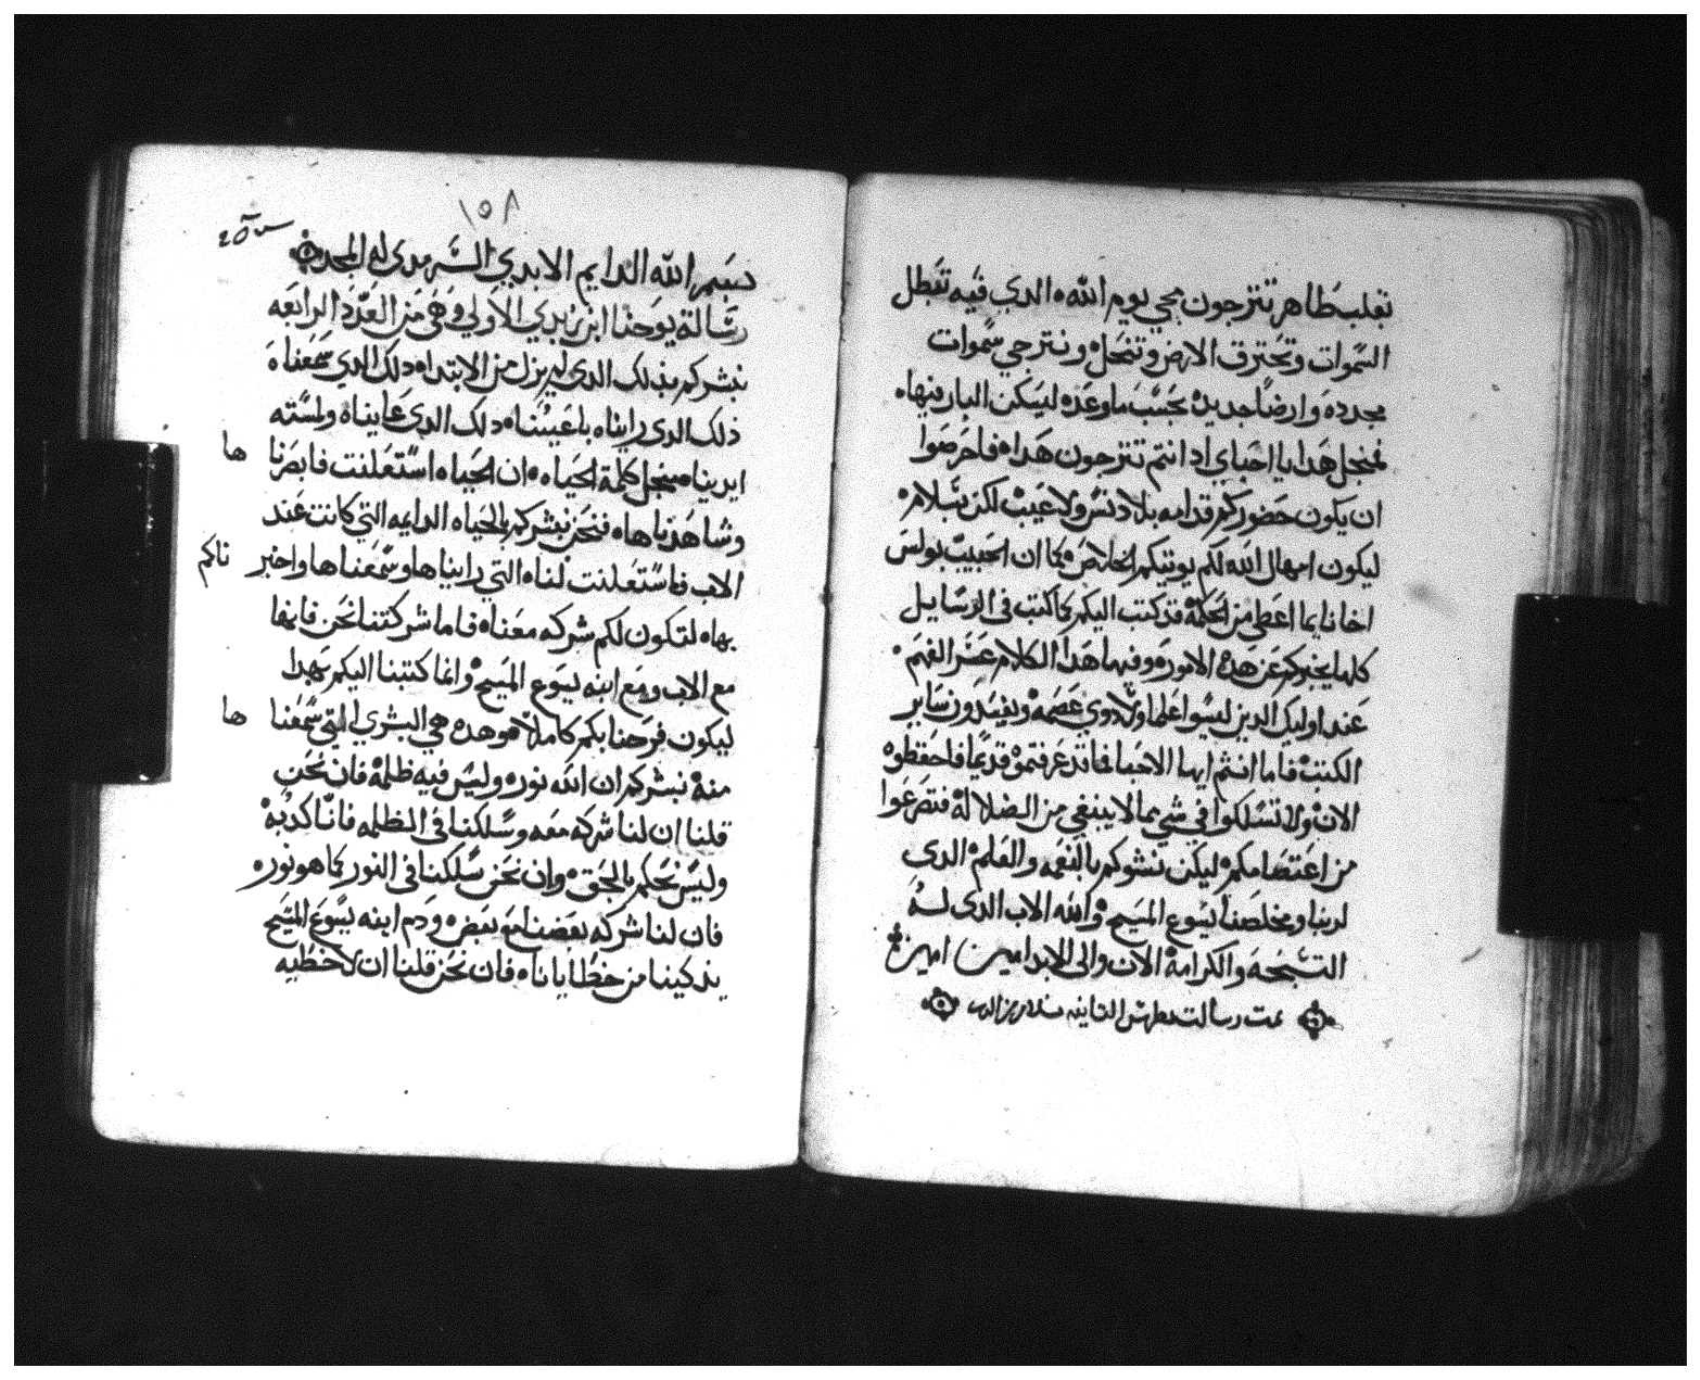 بقلب طاهر تترجون مجي يوم الله الدي فيه تبطل
السموات وتحترق الارض وتنحل ونترجي سموات
مجدده وارضا جديده بحسب ما وعده ليسكن البار فيها
فمنجل هدا يا احباي اد انتم تترجون هدا فاحرصوا
ان يكون حضوركم قدامه بلا دنس ولا عيب لكن بسلام
ليكون امهال الله لكم يوتيكم الخلاص كما ان الحبيب بولس
اخانا بما اعطي من الحكمة قد كتب اليكم كما كتب في الرسايل
كلها يخبركم عن هده الامور وفيها هدا الكلام عسر الفهم
عند اوليك الدين ليسوا علما ولا دوي عصمه ويفسدون ساير
الكتب فاما انتم ايها الاحبا فقد عرفتموه قديما فاحفظوه
الان ولا تسلكوا في شي مما لا ينبغي من الضلاله فتصرعوا
من اعتصامكم ليكن نشوكم بالنعمه والعلم الدي
لربنا ومخلصنا يسوع المسيح والله الاب الدي له
التسبحه والكرامة الان والى الابد امين امين
تمت رسالت بطرس الثانيه بسلام من الرب
١٥٨
بسم الله الدايم الابدي السرمدي له المجد
رسالة يوحنا ابن زبدي الاولي وهي من العدد الرابعه
نبشركم بذلك الدي لم يزل من الابتداه دلك الدي سمعناه
ذلك الدي رايناه باعيننا دلك الدي عايناه ولمسته
ايدينا من اجل كلمة الحياه ان الحياه استعلنت فابصرنا ها
وشاهدناها فنحن نبشركم بالحياه الدايمه التي كانت عند
الاب فاستعلنت لنا التي رايناها وسمعناها واخبر ناكم
بها لتكون لكم شركه معنا فاما شركتنا نحن فانها
مع الاب ومع ابنه يسوع المسيح وانما كتبنا اليكم بهدا
ليكون فرحنا بكم كاملا وهده هي البشري التي سمعنا ها
منه نبشركم ان الله نور وليس فيه ظلمه فان نحن
قلنا ان لنا شركه معه وسلكنا في الظلمه فانا كدبه
وليس نحكم بالحق وان نحن سلكنا في النور كما هو نور
فان لنا شركه بعضنا مع بعض ودم ابنه يسوع المسيح
يذكينا من خطايانا فان نحن قلنا ان لا خطيه